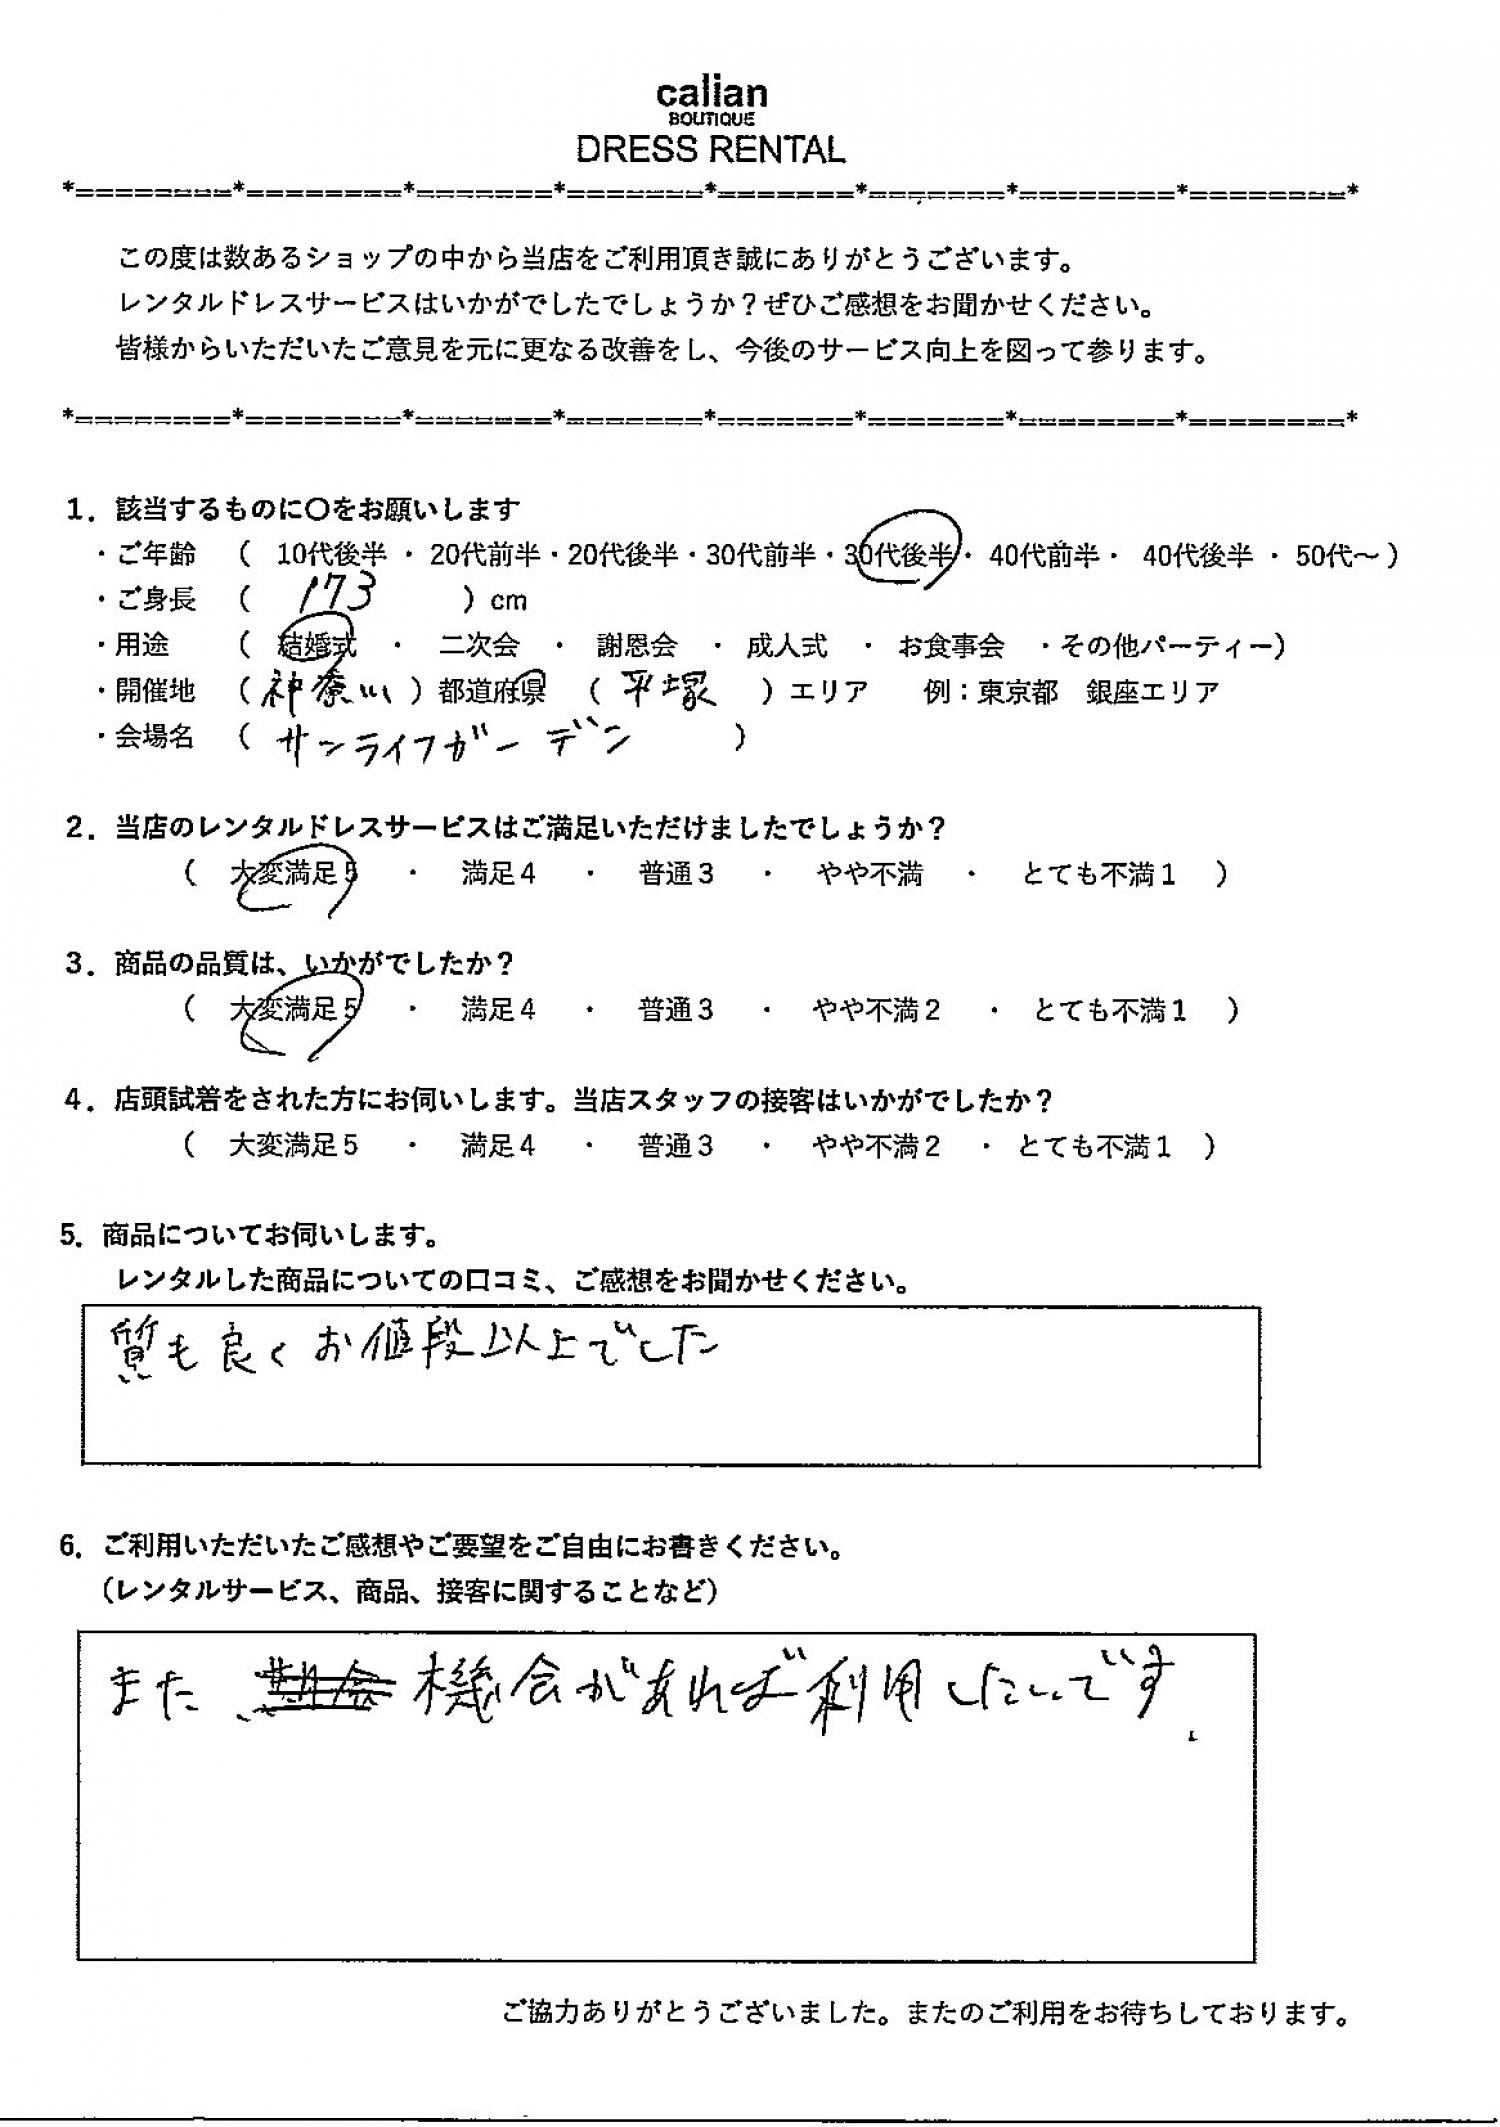 calian
BOUTIQUE
DRESS RENTAL
*========*========*=======*=======*=======*=======*========*========*
この度は数あるショップの中から当店をご利用頂き誠にありがとうございます。
レンタルドレスサービスはいかがでしたでしょうか？ぜひご感想をお聞かせください。
皆様からいただいたご意見を元に更なる改善をし、今後のサービス向上を図って参ります。
*========*========*=======*=======*=======*=======*========*========*
1．該当するものに〇をお願いします
・ご年齢 （ 10代後半 ・ 20代前半・20代後半・30代前半・30代後半・ 40代前半・ 40代後半 ・ 50代～）
・ご身長 （ 173 ）cm
・用途 （ 結婚式 ・ 二次会 ・ 謝恩会 ・ 成人式 ・ お食事会 ・その他パーティー）
・開催地 （神奈川）都道府県 （ 平塚 ）エリア 例：東京都 銀座エリア
・会場名 （ サンライフガーデン ）
2．当店のレンタルドレスサービスはご満足いただけましたでしょうか？
（ 大変満足5 ・ 満足4 ・ 普通3 ・ やや不満 ・ とても不満1 ）
3．商品の品質は、いかがでしたか？
（ 大変満足5 ・ 満足4 ・ 普通3 ・ やや不満2 ・ とても不満1 ）
4．店頭試着をされた方にお伺いします。当店スタッフの接客はいかがでしたか？
（ 大変満足5 ・ 満足4 ・ 普通3 ・ やや不満2 ・ とても不満1 ）
5．商品についてお伺いします。
レンタルした商品についての口コミ、ご感想をお聞かせください。
質も良くお値段以上でした
6．ご利用いただいたご感想やご要望をご自由にお書きください。
（レンタルサービス、商品、接客に関することなど）
また 機会があれば利用したいです.
ご協力ありがとうございました。またのご利用をお待ちしております。